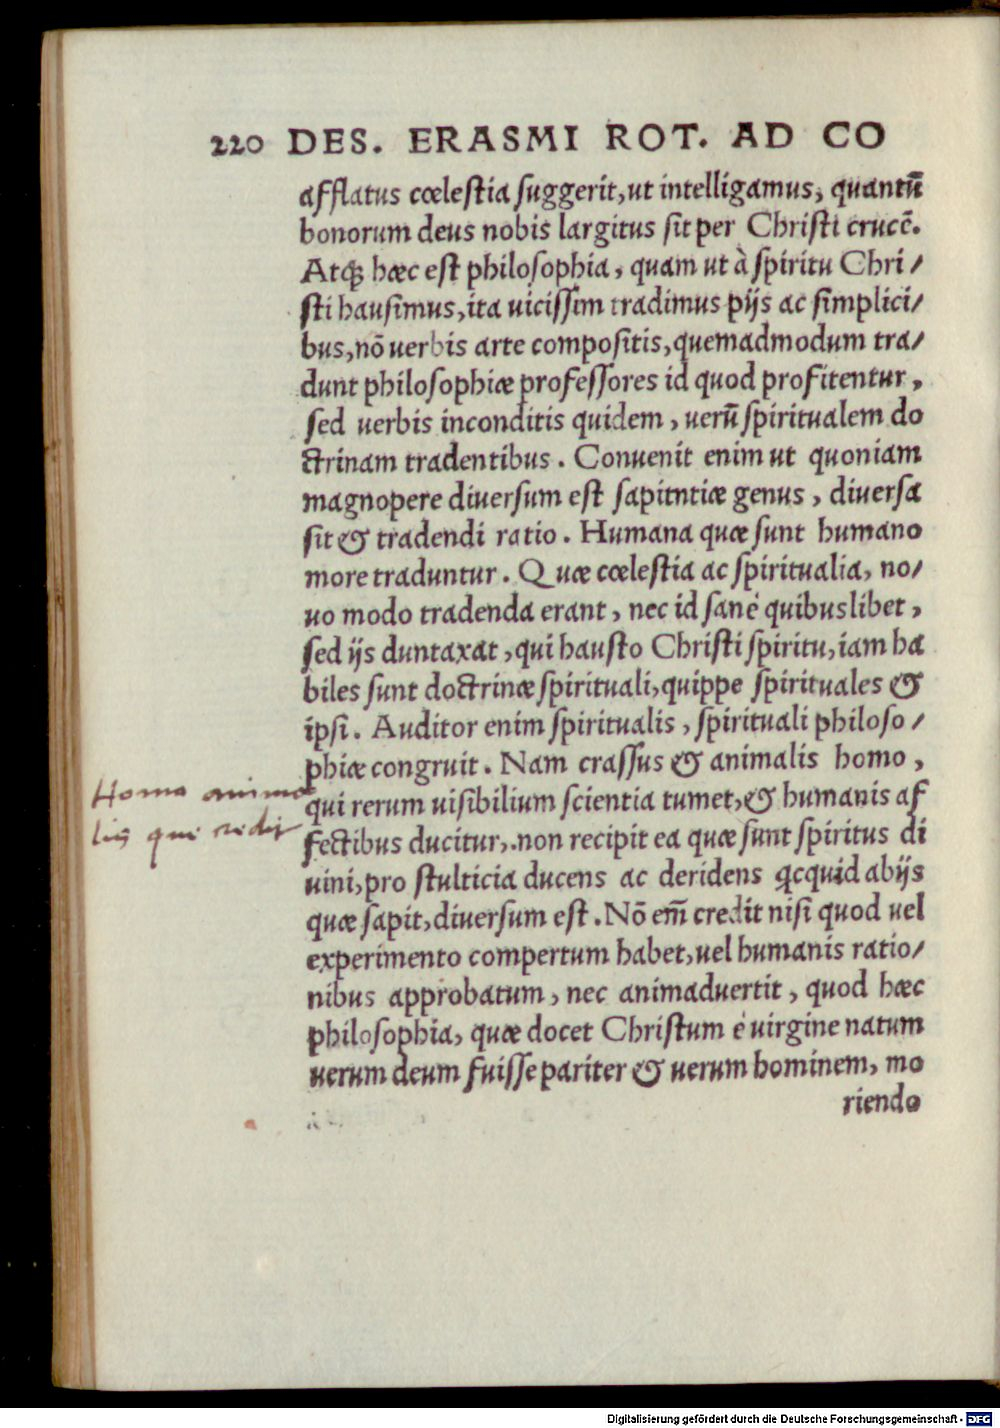 220 DES. ERASMI ROT. AD CO
afflatus cœlestia suggerit, ut intelligamus, quantū
bonorum deus nobis largitus sit per Christi crucē.
Atq; hæc est philosophia, quam ut à spiritu Chri/
sti hausimus, ita uicissim tradimus pijs ac simplici/
bus, nō uerbis arte compositis, quemadmodum tra/
dunt philosophiæ professores id quod profitentur,
sed uerbis inconditis quidem, uerū spiritualem do
ctrinam tradentibus. Conuenit enim ut quoniam
magnopere diuersum est sapitntiæ genus, diuersa
sit & tradendi ratio. Humana quæ sunt humano
more traduntur. Quæ cœlestia ac spiritualia, no/
uo modo tradenda erant, nec id sanè quibuslibet,
sed ijs duntaxat, qui hausto Christi spiritu, iam ha
biles sunt doctrinæ spirituali, quippe spirituales &
ipsi. Auditor enim spiritualis, spirituali philoso/
phiæ congruit. Nam crassus & animalis homo,
Homo anima
qui rerum uisibilium scientia tumet, & humanis af
lis qui
fectibus ducitur, non recipit ea quæ sunt spiritus di
uini, pro stulticia ducens ac deridens qcquid ab ijs
quæ sapit, diuersum est. Nō em̄ credit nisi quod uel
experimento compertum habet, uel humanis ratio/
nibus approbatum, nec animaduertit, quod hæc
philosophia, quæ docet Christum è uirgine natum
uerum deum fuisse pariter & uerum hominem, mo
riendo
Digitalisierung gefördert durch die Deutsche Forschungsgemeinschaft - DFG